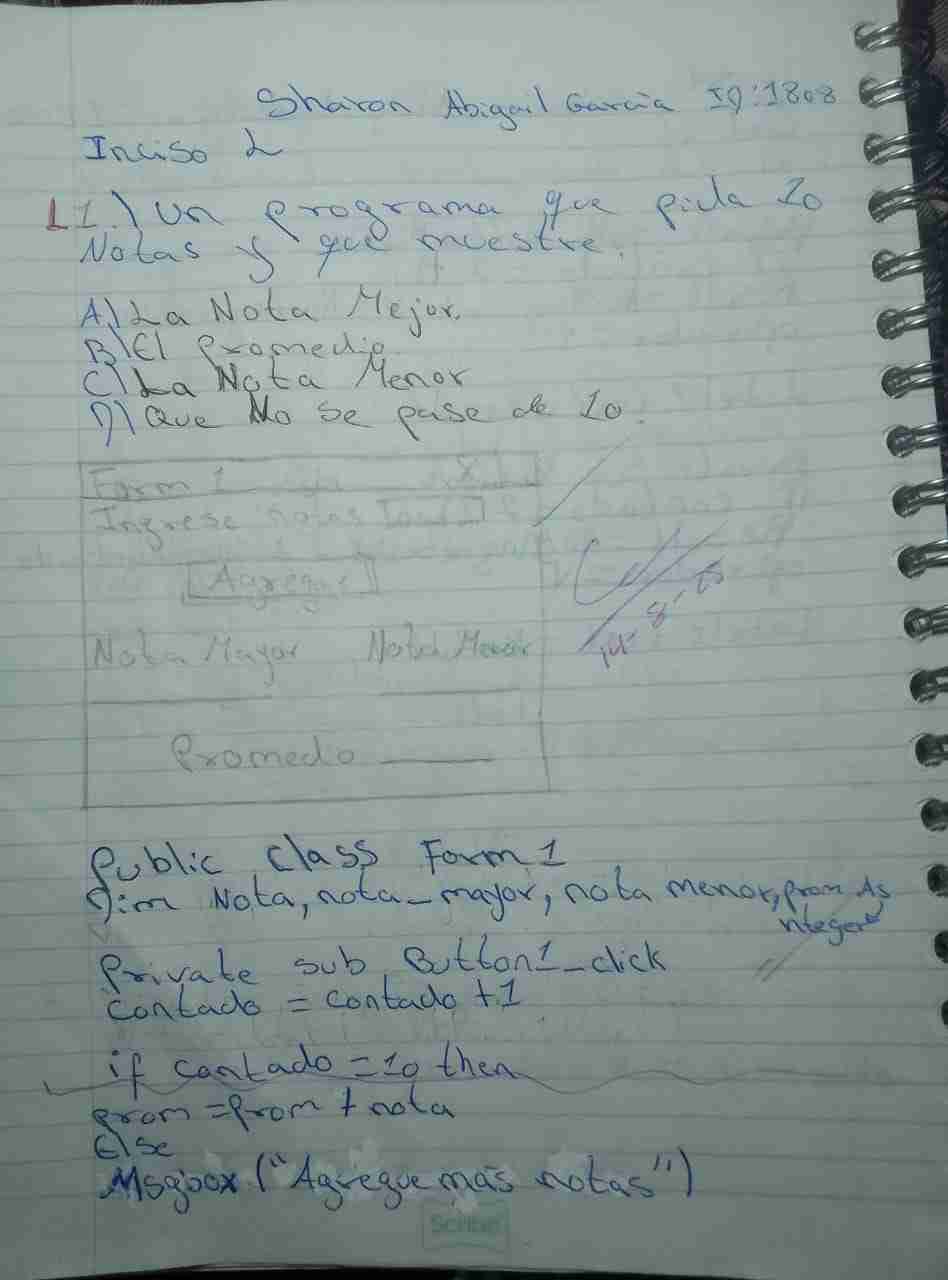 Sharon Abigail Garcia ID:1808
Inciso 2
1.) Un programa que pida 10
Notas y que muestre.
A) La Nota Mejor.
B) El promedio
C) La Nota Menor
D) Que No se pase de 10.
Form 1 X
Ingrese notas
Agregar
Nota Mayor Nota Menor
Promedo
Public class Form1
Dim Nota, nota_mayor, nota menor, prom As
nteger
Private sub Button1_click
contado = contado +1
if contado =10 then
prom = prom + nota
Else
Msgbox ("Agregue más notas")
Scribe